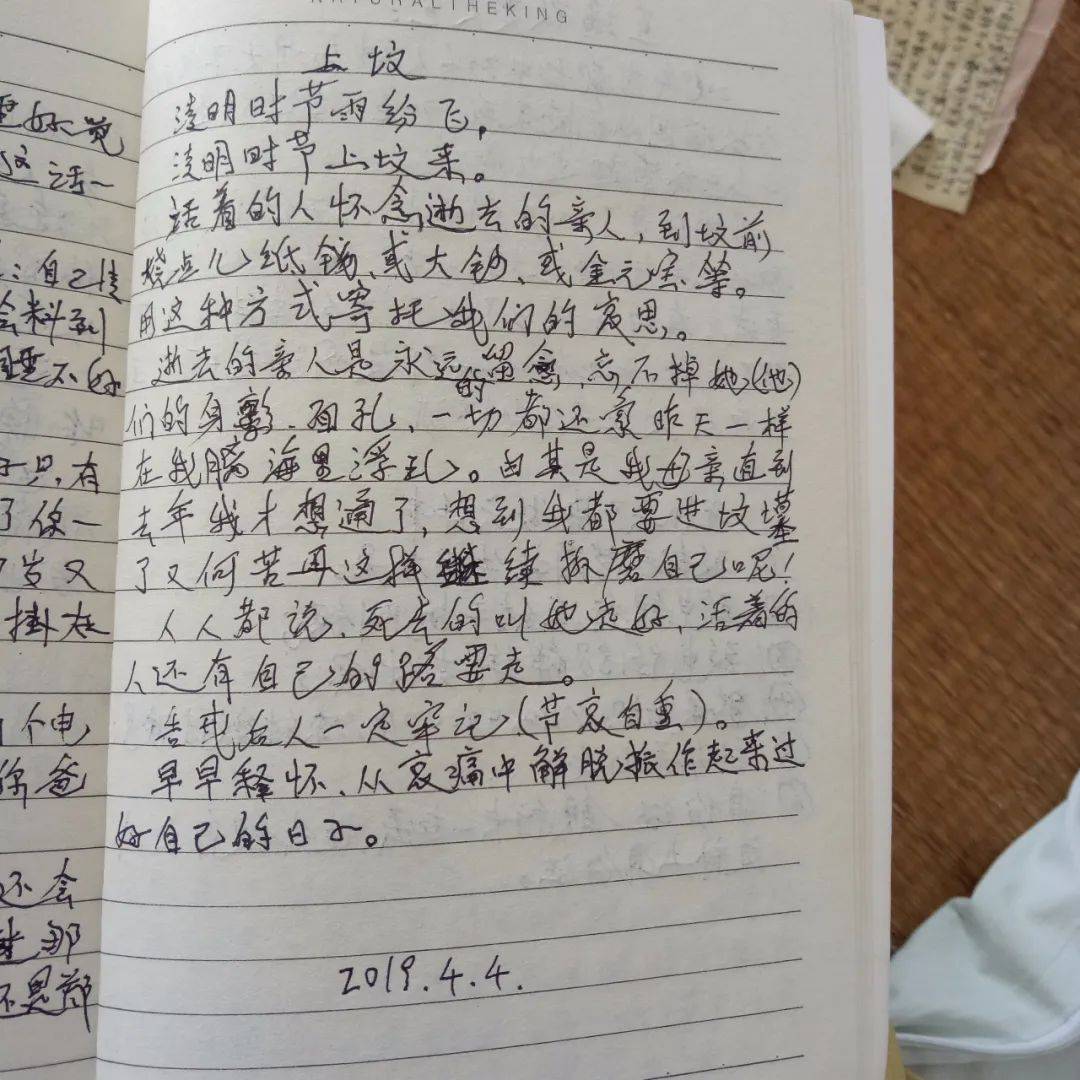 NATURALTHEKING
上坟
清明时节雨纷飞，
清明时节上坟来。
活着的人怀念逝去的亲人，到坟前
烧点儿纸钱、或大钞、或金元宝等。
用这种方式寄托我们的哀思。
逝去的亲人是永远的留念，忘不掉她(他)
们的身影、面孔、一切都还象昨天一样
在我脑海里浮现。由其是我母亲直到
去年我才想通了，想到我都要进坟墓
了又何苦再这样继续折磨自己呢！
人人都说、死去的叫她走好、活着的
人还有自己的路要走。
告戒后人一定牢记(节哀自重)。
早早释怀、从哀痛中解脱振作起来过
好自己的日子。
2019.4.4.
好觉
这话一
：自己
会料到
不好
只，有
了你一
岁又
掛在
个电
你爸
还会
那